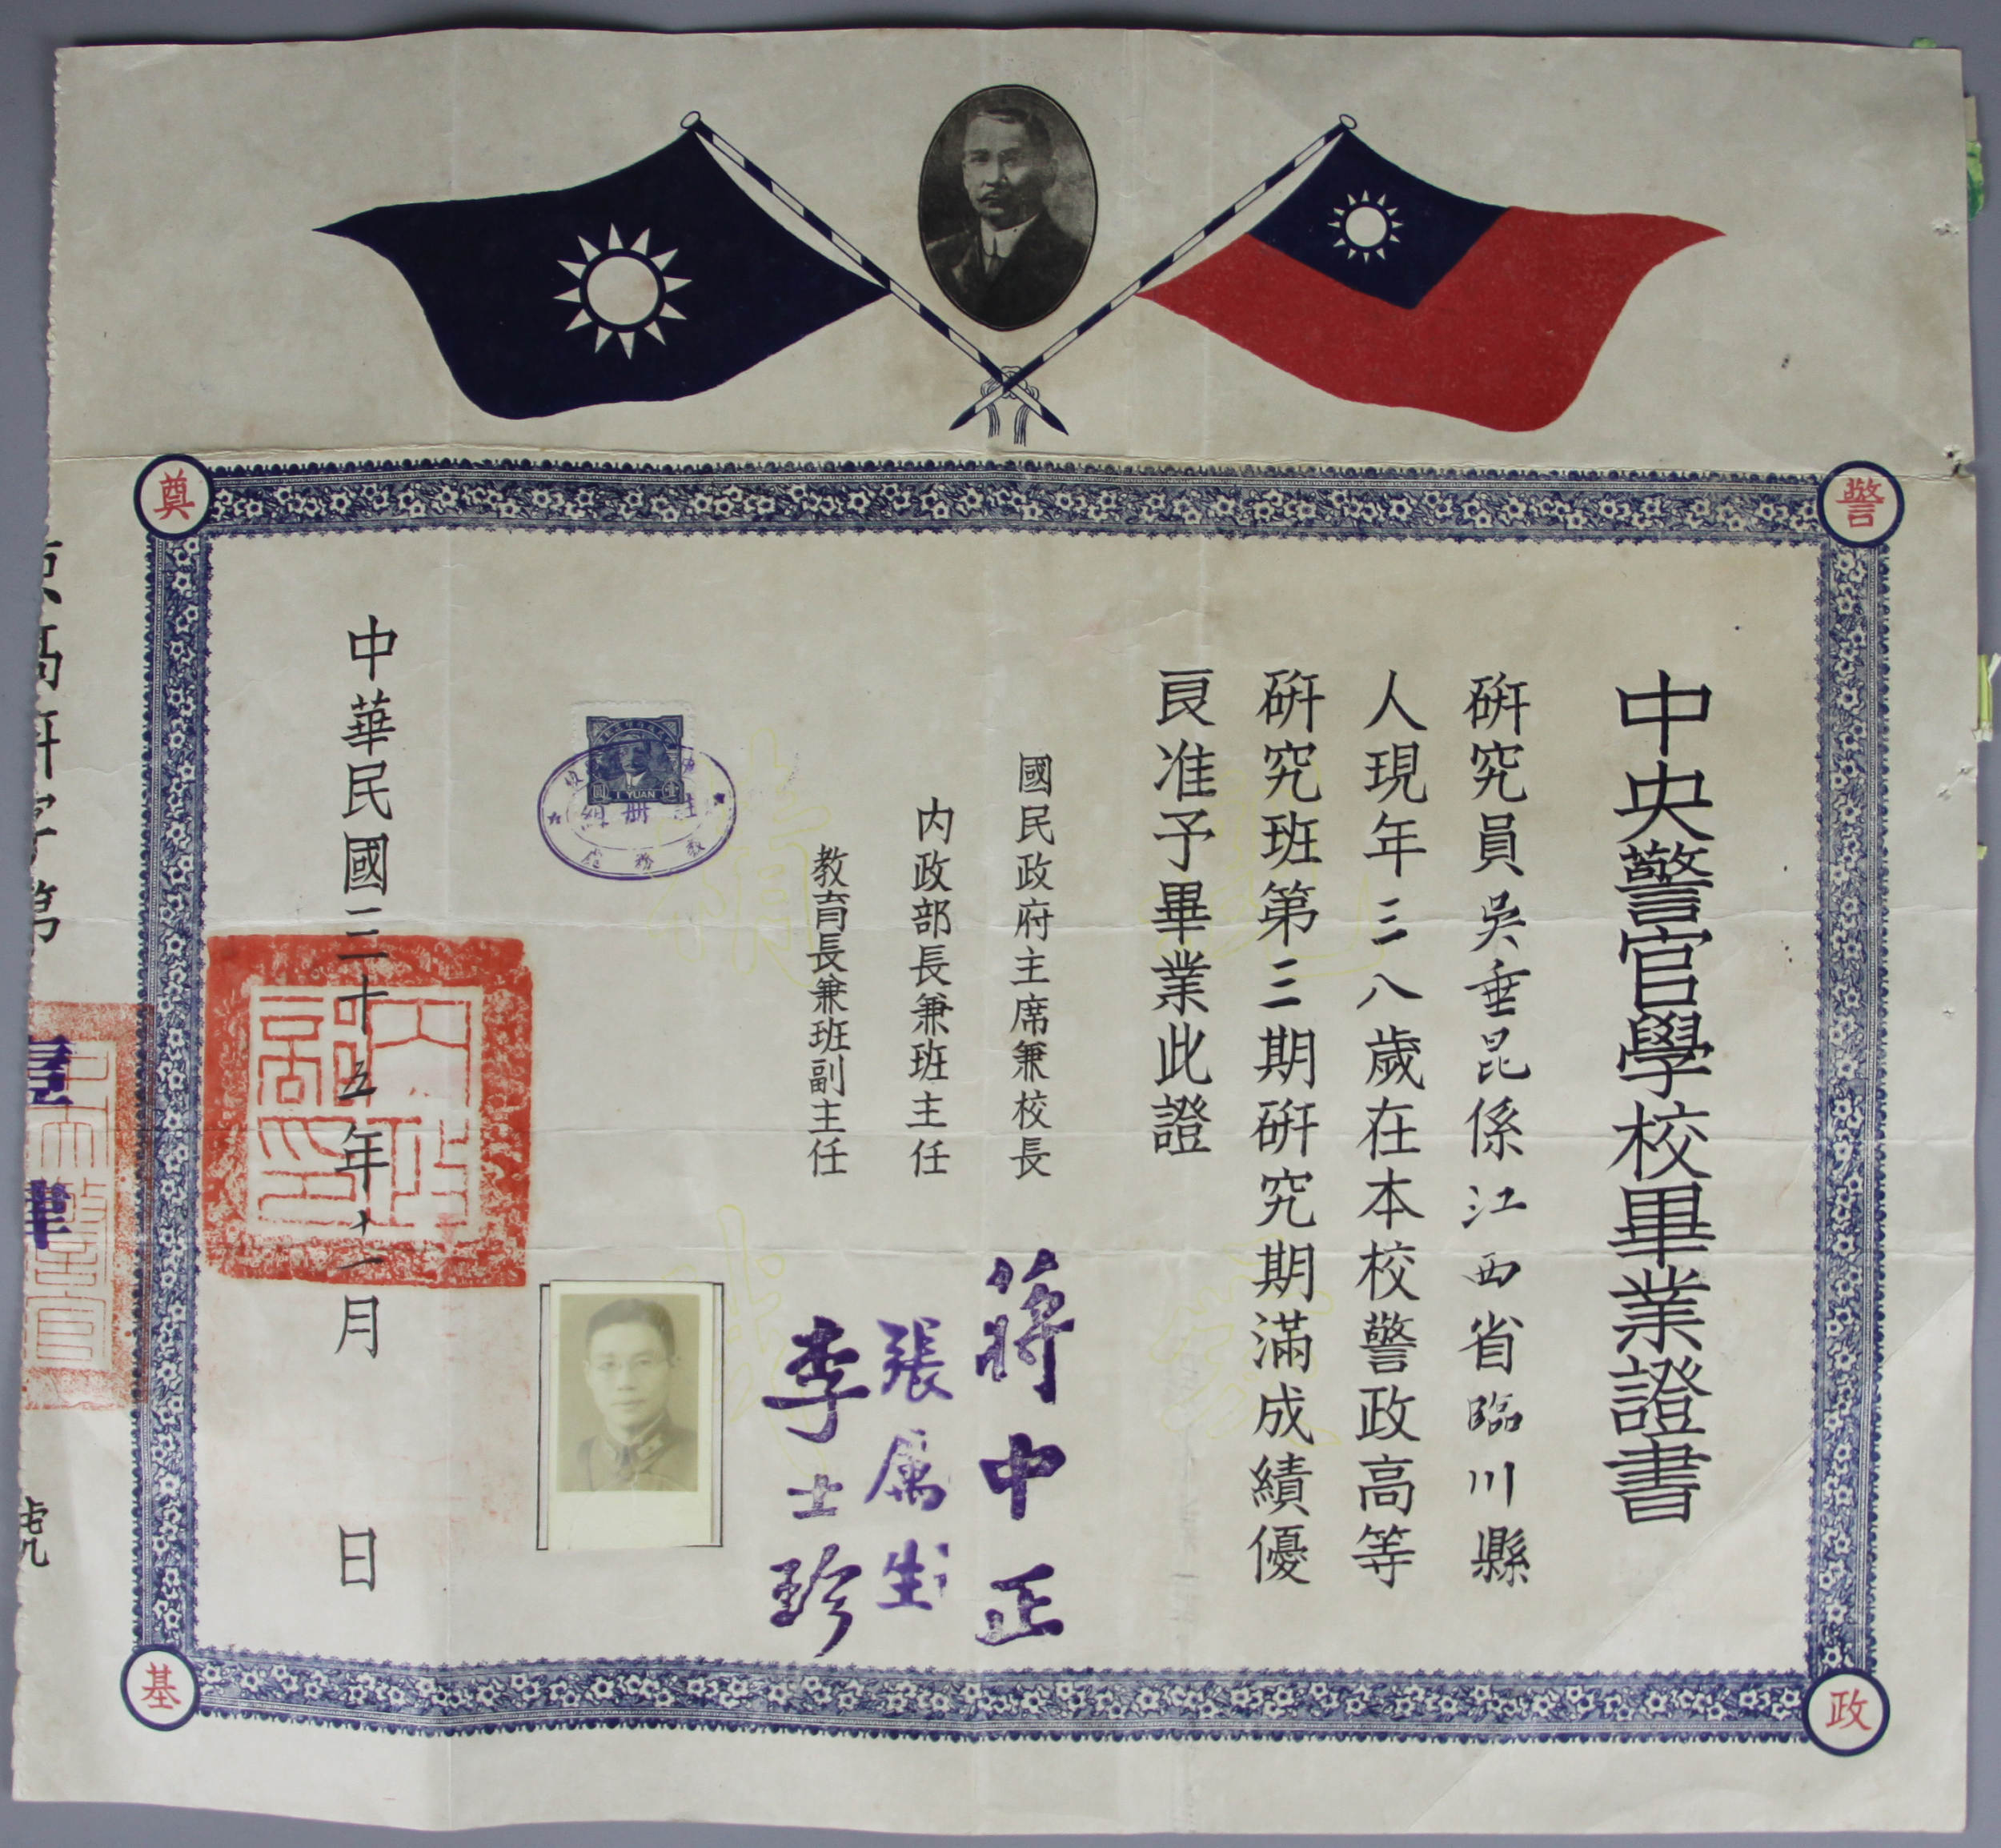 警
政
奠
基
中央警官學校畢業證書
研究員吳垂昆係江西省臨川縣
人現年三八歲在本校警政高等
研究班第三期研究期滿成績優
良准予畢業此證
國民政府主席兼校長
蔣中正
內政部長兼班主任
張厲生
教育長兼班副主任
李士珍
1 YUAN
圓
壹
教務處
中華民國三十五年十二月 日
內政部印
字第
號